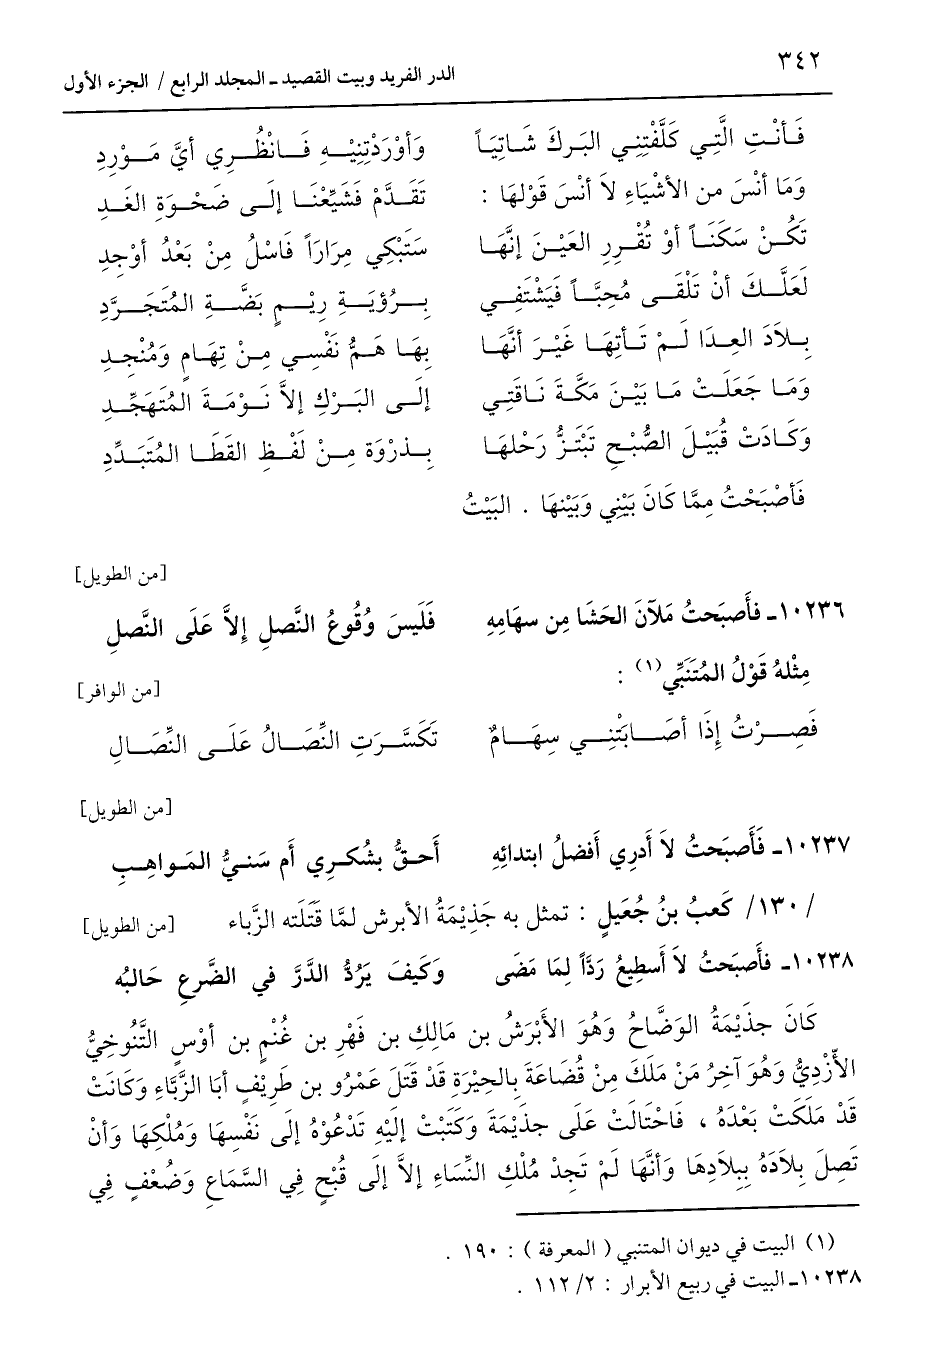 ٣٤٢
الدر الفريد وبيت القصيد ـ المجلد الرابع / الجزء الأول
فَأَنْتِ الَّتِي كَلَّفْتِنِي البَركَ شَاتِيَاً وَأوْرَدْتِنِيْهِ فَانْظُرِي أيَّ مَوْرِدِ
وَمَا أنْسَ من الأشْيَاءِ لاَ أنْسَ قَوْلهَا : تَقَدَّمْ فَشَيِّعْنَا إلَى ضَحْوَةِ الغَدِ
تَكُنْ سَكَنَاً أوْ تُقْرِرِ العَيْنَ إنَّهَا سَتَبْكِي مِرَارَاً فَاسْلُ مِنْ بَعْدُ أوْجدِ
لَعَلَّكَ أنْ تَلْقَى مُحِبَّاً فَيَشْتَفِي بِرُؤيَةِ رِيْمٍ بَضَّةِ المُتَجَرَّدِ
بِلاَدَ العِدَا لَمْ تَأتِهَا غَيْرَ أنَّهَا بِهَا هَمُّ نَفْسِي مِنْ تِهَامٍ وَمُنْجِدِ
وَمَا جَعَلَتْ مَا بَيْنَ مَكَّةَ نَاقَتِي إلَى البَرْكِ إلاَّ نَوْمَةَ المُتَهَجِّدِ
وَكَادَتْ قُبَيْلَ الصُّبْحِ تَبْتَزُّ رَحْلهَا بِذرْوَة مِنْ لَفْظِ القَطَا المُتَبَدِّدِ
فَأصْبَحْتُ مِمَّا كَانَ بَيْنِي وَبَيْنهَا . البَيْتُ
[من الطويل]
١٠٢٣٦ـ فأَصبَحتُ مَلآنَ الحَشَا مِن سهَامِهِ فَلَيسَ وُقُوعُ النَّصلِ إلاَّ عَلَى النَّصلِ
مِثْلهُ قَوْلُ المُتَنَبِّي(١) :
[من الوافر]
فَصِرْتُ إذَا أصَابَتْنِي سِهَامٌ تَكَسَّرَتِ النِّصَالُ عَلَى النِّصَالِ
[من الطويل]
١٠٢٣٧ـ فَأَصبَحتُ لاَ أدرِي أَفضلُ ابتدائِهِ أَحقُّ بشُكرِي أم سَنيُّ المَواهِبِ
/ ١٣٠/ كَعبُ بنُ جُعَيلٍ : تمثل به جَذِيْمَةُ الأبرش لمَّا قَتَلَته الزَّباء [من الطويل]
١٠٢٣٨ـ فأَصبَحتُ لاَ أسطِيعُ رَدَّاً لِمَا مَضَى وَكَيفَ يَرُدُّ الدَّرَّ في الضَّرعِ حَالبُه
كَانَ جذَيْمَةُ الوَضَّاحُ وَهُوَ الأَبْرَشُ بن مَالِكِ بن فَهْرِ بن غُنْمٍ بن أوْسٍ التَّنُوخِيُّ
الأزْدِيُّ وَهُوَ آخِرُ مَنْ مَلَكَ مِنْ قُضَاعَةَ بِالحِيْرَةِ قَدْ قَتَلَ عَمْرُو بن طَرِيْفٍ أبَا الزَّبَّاءِ وَكَانَتْ
قَدْ مَلَكَتْ بَعْدَهُ ، فَاحْتَالَتْ عَلَى جذَيْمَةَ وَكَتَبَتْ إلَيْهِ تَدْعُوْهُ إلَى نَفْسِهَا وَمُلْكِهَا وَأنْ
تَصِلَ بِلاَدَهُ بِبِلاَدِهَا وَأنَّهَا لَمْ تَجِدْ مُلْكِ النِّسَاءِ إلاَّ إلَى قُبْحٍ فِي السَّمَاعِ وَضُعْفٍ فِي
(١) البيت في ديوان المتنبي ( المعرفة ) : ١٩٠ .
١٠٢٣٨ـ البيت في ربيع الأبرار : ٢/ ١١٢ .